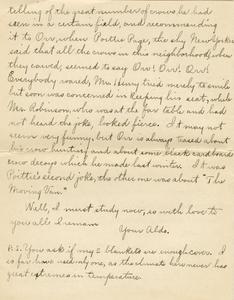 telling of the great number of crows he had
seen in a certain field, and recommending
it to Orv, when Poitie Page, the shy New Yorker
said that all the crows in this neighborhood, when
they cawed, seemed to say Orv! Orv! Orv!
Everybody roared, Mr. Henry tried merely to smile
but soon was concerned in keeping his seat, while
Mr. Robinson, who was at the far table and had
not heard the joke, looked fierce. It may not
seem very funny, but Orv is always teased about
his crow hunting and about some black cardboard
crow decoys which he made last winter. It was
Poittie's second joke, the other one was about "The
Moving Van."
Well, I must study now, so with love to
you all I remain
Yours Aldo.
P.S. You ask if my 2 blankets are enough cover. I
so far have used only one, as the climate here never has
great extremes in temperature.